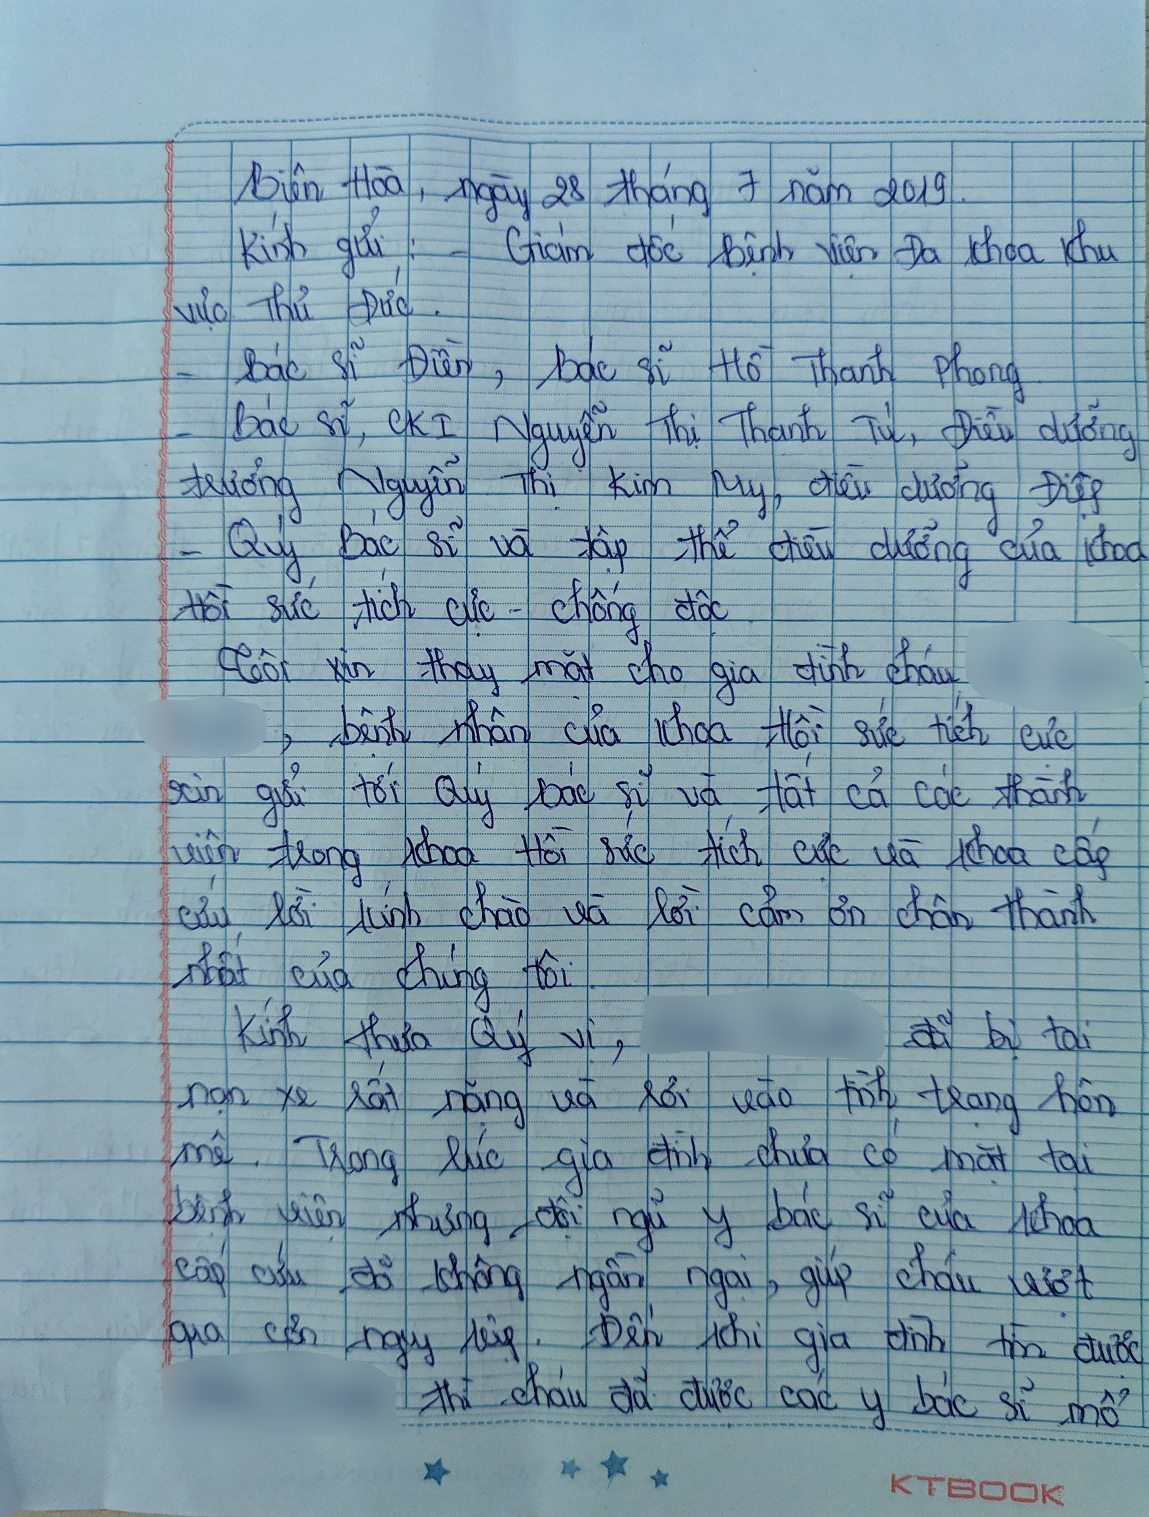 Biên Hòa, ngày 28 tháng 7 năm 2019.
Kính gửi : - Giám đốc bệnh viện Đa khoa khu
vực Thủ Đức.
- Bác sĩ Điền, bác sĩ Hồ Thanh Phong
- Bác sĩ, CKI Nguyễn Thị Thanh Tú, Điều dưỡng
trưởng Nguyễn Thị Kim My, điều dưỡng Điệp
- Quý Bác sĩ và tập thể điều dưỡng của khoa
Hồi sức tích cực - chống độc
Tôi xin thay mặt cho gia đình cháu
, bệnh nhân của khoa Hồi sức tích cực
xin gửi tới Quý bác sĩ và tất cả các thành
viên trong khoa Hồi sức tích cực và khoa cấp
cứu lời kính chào và lời cảm ơn chân thành
nhất của chúng tôi.
Kính thưa Quý vị, đã bị tai
nạn xe rất nặng và rơi vào tình trạng hôn
mê. Trong lúc gia đình chưa có mặt tại
bệnh viện nhưng đội ngũ y bác sĩ của khoa
cấp cứu đã không ngần ngại, giúp cháu vượt
qua cơn nguy kịp. Đến khi gia đình tìm được
thì cháu đã được các y bác sĩ mổ
KTBOOK